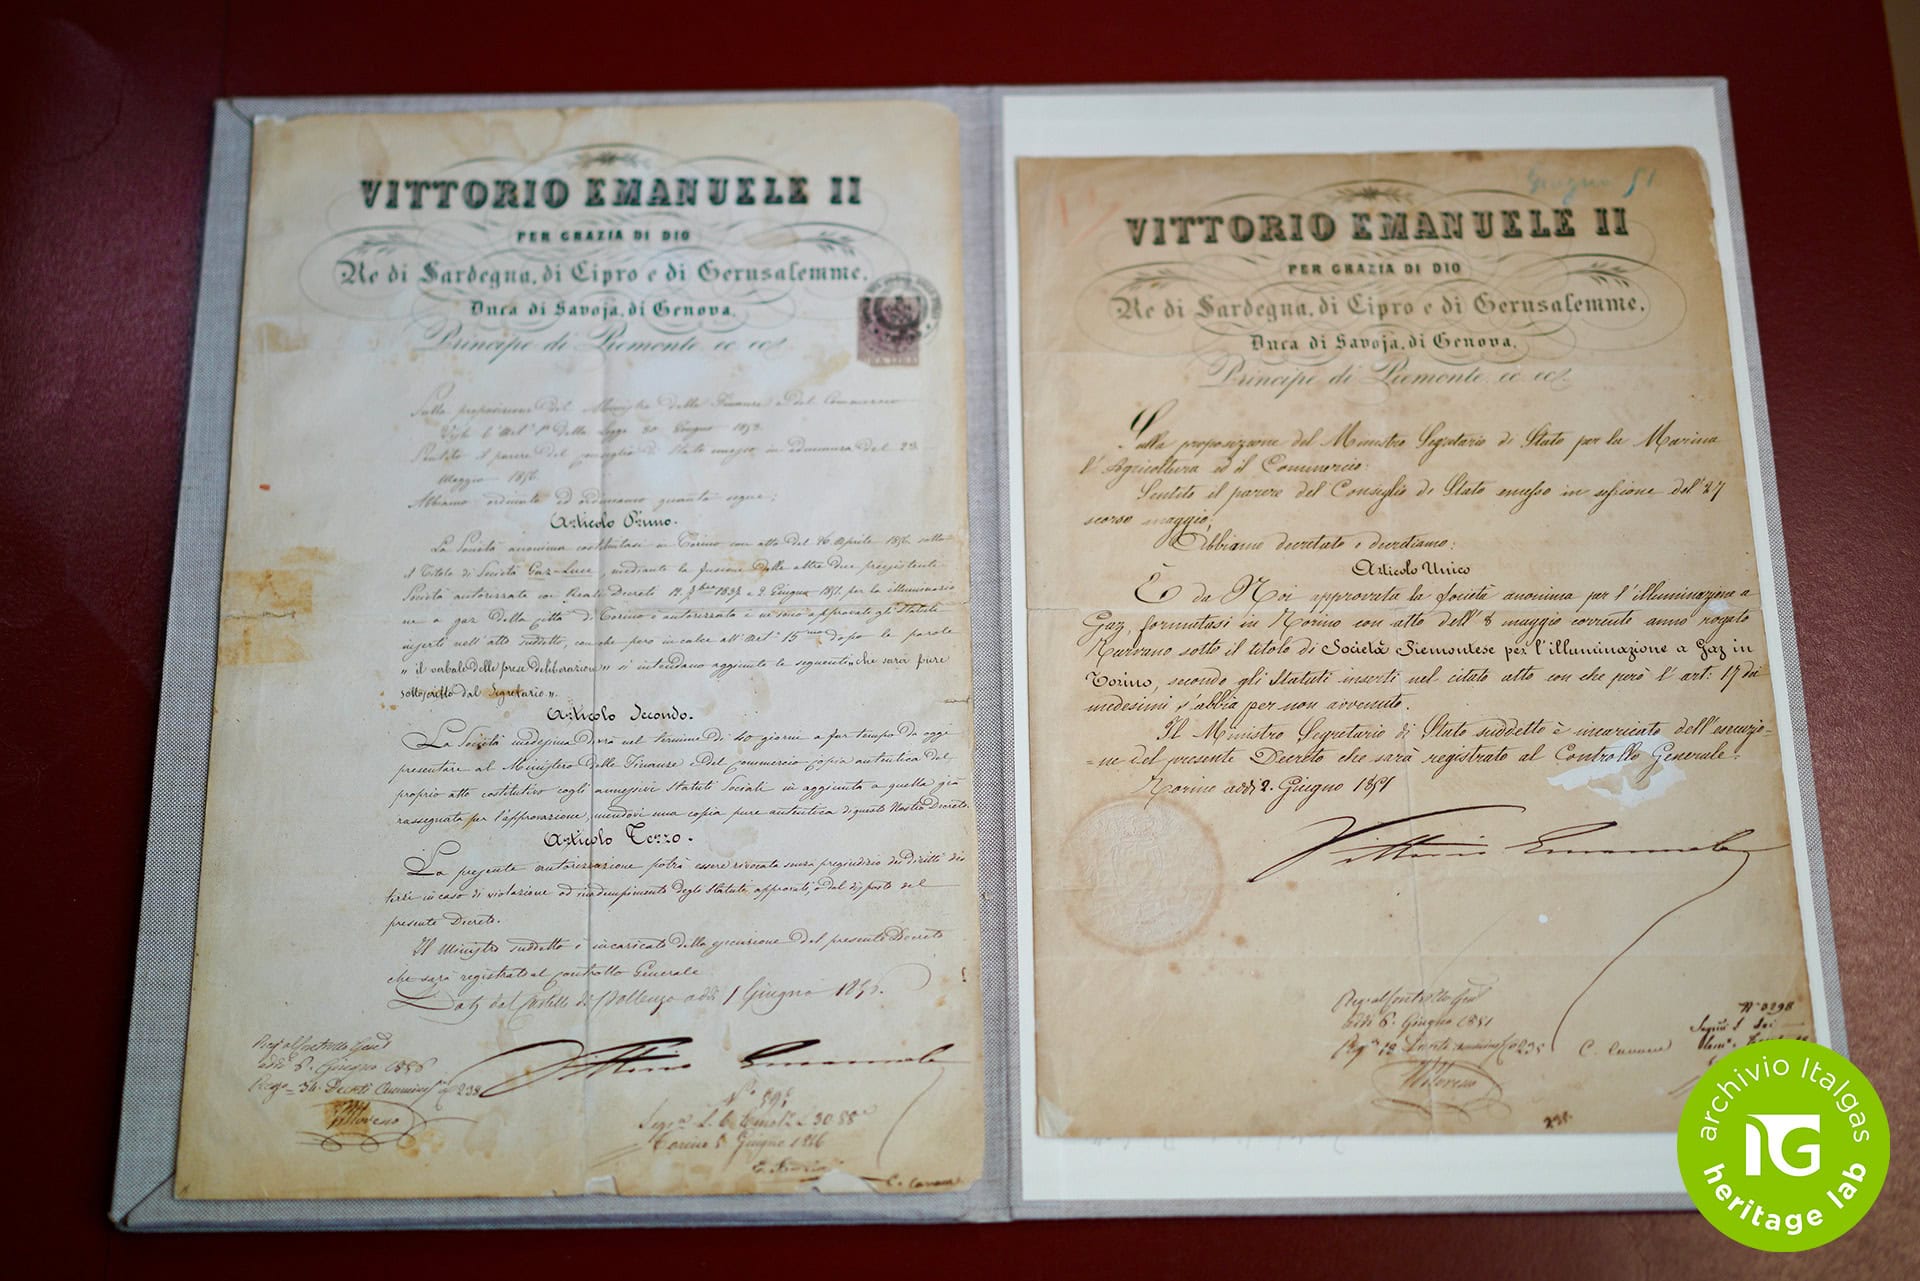 VITTORIO EMANUELE II
PER GRAZIA DI DIO
Re di Sardegna, di Cipro e di Gerusalemme,
Duca di Savoja, di Genova,
Principe di Piemonte ec ec.
Sulla proposizione del Ministro delle Finanze e del Commercio
Visto l'Art° 1° della Legge 30 Giugno 1853
Sentito il parere del Consiglio di Stato emesso in adunanza del 23
Maggio 1856
Abbiamo ordinato ed ordiniamo quanto segue;
Articolo Primo.
La Società anonima costituitasi in Torino con atto del 26 Aprile 1856 sotto
il Titolo di Società Gaz-Luce, mediante la fusione delle altre due preesistenti
Società autorizzate con Reali Decreti e 2 Giugno 1851 per la illuminazio
ne a gaz della città di Torino è autorizzata e ne sono approvati gli Statuti
inserti nell'atto suddetto, con che però in calce all'Art° 15 dopo le parole
"il verbale delle prese deliberazioni" si intendano aggiunte le seguenti "che sarà pure
sottoscritto dal Segretario".
Articolo Secondo.
La Società medesima dovrà nel termine di 40 giorni a far tempo da oggi
presentare al Ministero delle Finanze e del Commercio copia autentica del
proprio atto costitutivo cogli annessivi Statuti Sociali in aggiunta a quella già
rassegnata per l'approvazione, unendovi una copia pure autentica di questo Nostro Decreto.
Articolo Terzo.
La presente autorizzazione potrà essere rivocata senza pregiudizio dei diritti dei
terzi in caso di violazione od inadempimento degli Statuti approvati, o del disposto del
presente Decreto.
Il Ministro suddetto è incaricato della esecuzione del presente Decreto
che sarà registrato al Controllo Generale
Dat. dal Castello di Pollenzo addì 1 Giugno 1856.
Reg° al Controllo Gen.
addì 6 Giugno 1856
Reg° 34 Decreti 238
Moreno
Vittorio Emanuele
Torino Giugno 1856
C. Cavour
Giugno 51
VITTORIO EMANUELE II
PER GRAZIA DI DIO
Re di Sardegna, di Cipro e di Gerusalemme,
Duca di Savoja, di Genova,
Principe di Piemonte ec ec.
Sulla proposizione del Ministro Segretario di Stato per la Marina
l'Agricoltura ed il Commercio:
Sentito il parere del Consiglio di Stato emesso in sessione del 27
scorso maggio;
Abbiamo decretato e decretiamo:
Articolo Unico
È da Noi approvata la Società anonima per l'illuminazione a
Gaz, formatasi in Torino con atto dell'8 maggio corrente anno rogato
Turvano sotto il titolo di Società Piemontese per l'illuminazione a Gaz in
Torino, secondo gli Statuti inserti nel citato atto con che però l'art: 17 dei
medesimi s'abbia per non avvenuto.
Il Ministro Segretario di Stato suddetto è incaricato dell'esecuzio=
=ne del presente Decreto che sarà registrato al Controllo Generale.
Torino addì 2. Giugno 1851
Vittorio Emanuele
Reg° al Controllo Gen.
addì 6. Giugno 1851
Reg° 19 235
Moreno
C. Cavour
N° 3298
235
archivio Italgas
IG
heritage lab